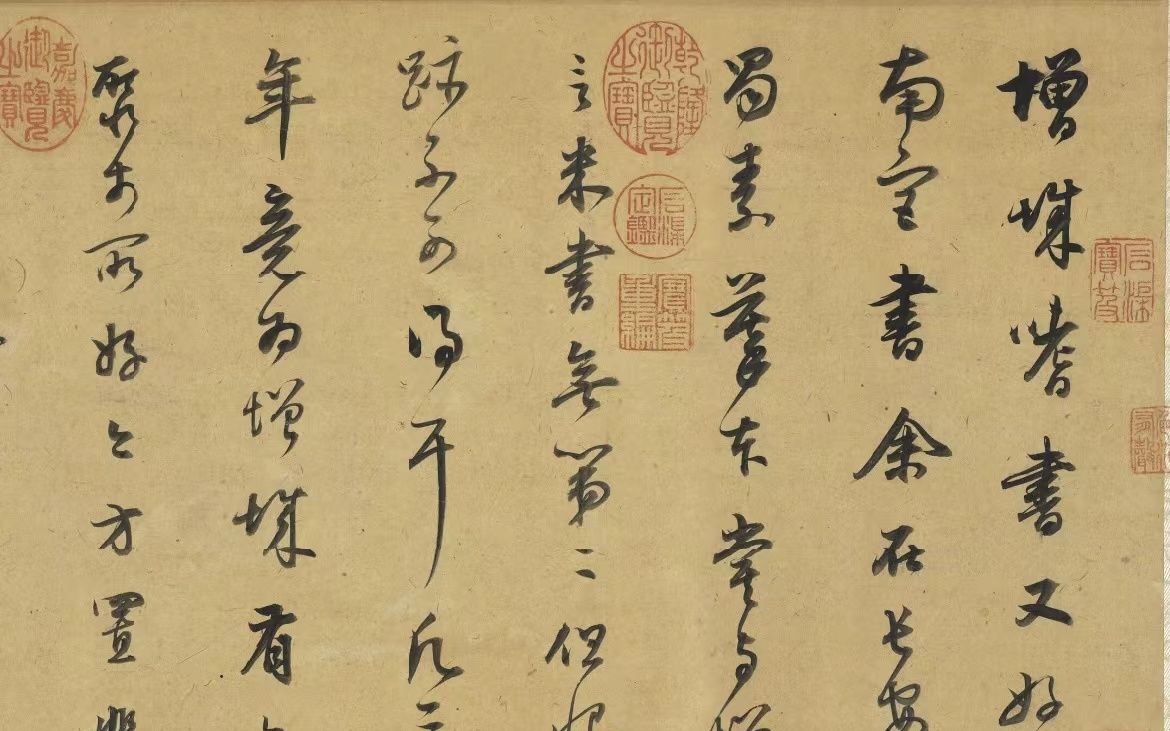 石渠寶笈
增城嗜書又好
南宮書余在長安
蜀素摹本嘗與增
乾隆御覽之寶
石渠定鑑
寶笈重編
言米書無第二但恨
跡不可得耳凡二
年竟為增城有
聚於所好今方置棐
嘉慶御覽之寶